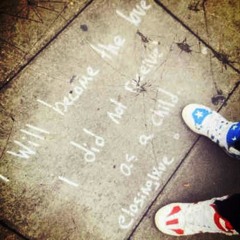 I Will become the love
I did not receive
as a child.
elossnglxe